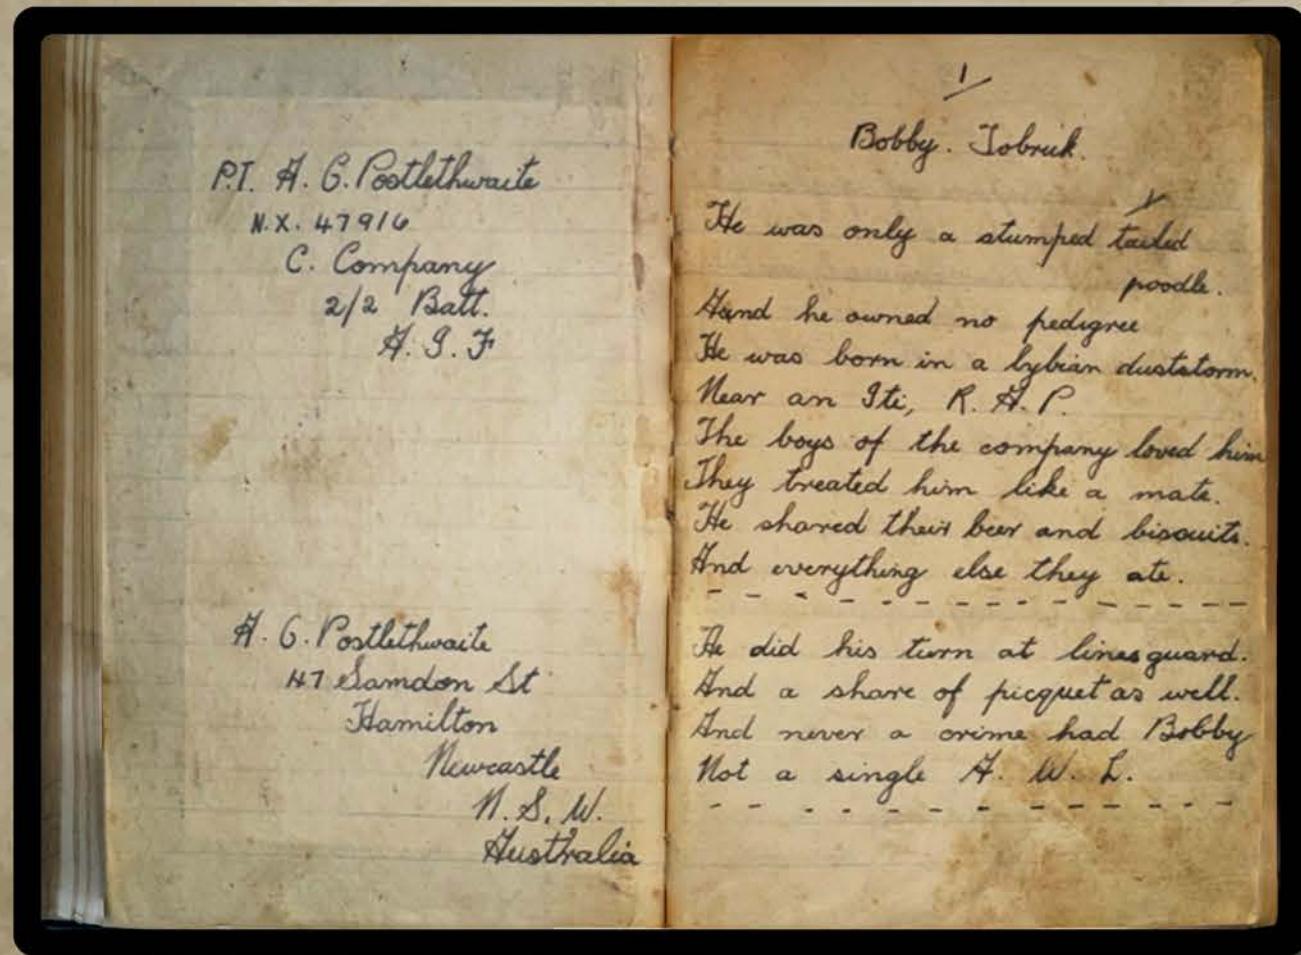 P.T. A. G. Postlethwaite
N.X. 47916
C. Company
2/2 Batt.
A. I. F
A. G. Postlethwaite
47 Samdon St
Hamilton
Newcastle
N. S. W.
Australia
1
Bobby. Tobruk.
He was only a stumped tailed
poodle.
Aand he owned no pedigree
He was born in a lybian duststorm.
Near an Iti, R. A. P.
The boys of the company loved him
They treated him like a mate.
He shared their beer and biscuits.
And everything else they ate.
He did his turn at lines guard.
And a share of picquet as well.
And never a crime had Bobby
Not a single A. W. L.